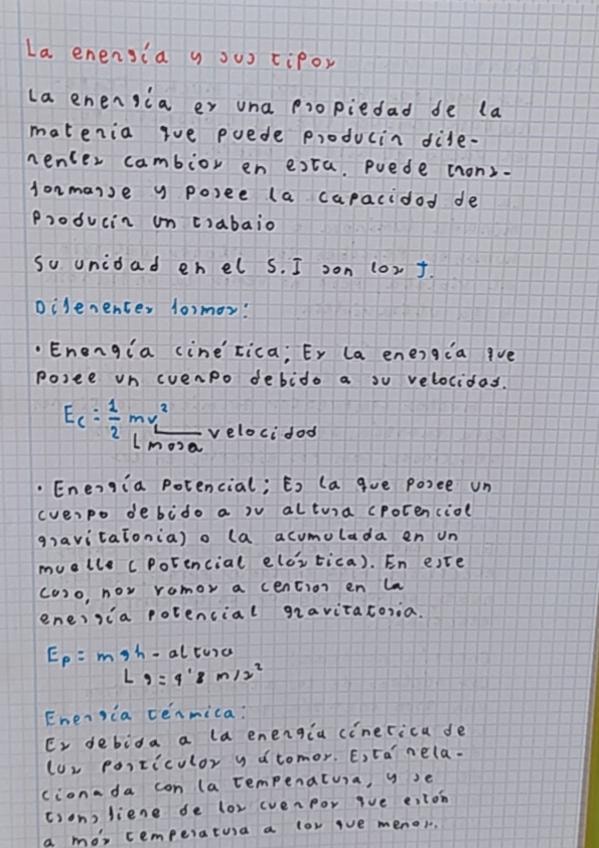 La energía y sus tipos
La energía es una propiedad de la
materia que puede producir dife-
rentes cambios en esta. Puede trans-
formarse y posee la capacidad de
producir un trabajo
Su unidad en el S.I son los J.
Diferentes formas:
· Energía cinética; Es la energía que
posee un cuerpo debido a su velocidad.
Ec = 1/2 mv²
velocidad
masa
· Energía Potencial; Es la que posee un
cuerpo debido a su altura (potencial
gravitatoria) o la acumulada en un
muelle (potencial elástica). En este
caso, nos vamos a centrar en la
energía potencial gravitatoria.
Ep = mgh - altura
g = 9'8 m/s²
Energía térmica:
Es debida a la energía cinetica de
las partículas y átomos. Está rela-
cionada con la temperatura, y se
transfiere de los cuerpos que están
a más temperatura a los que menos.